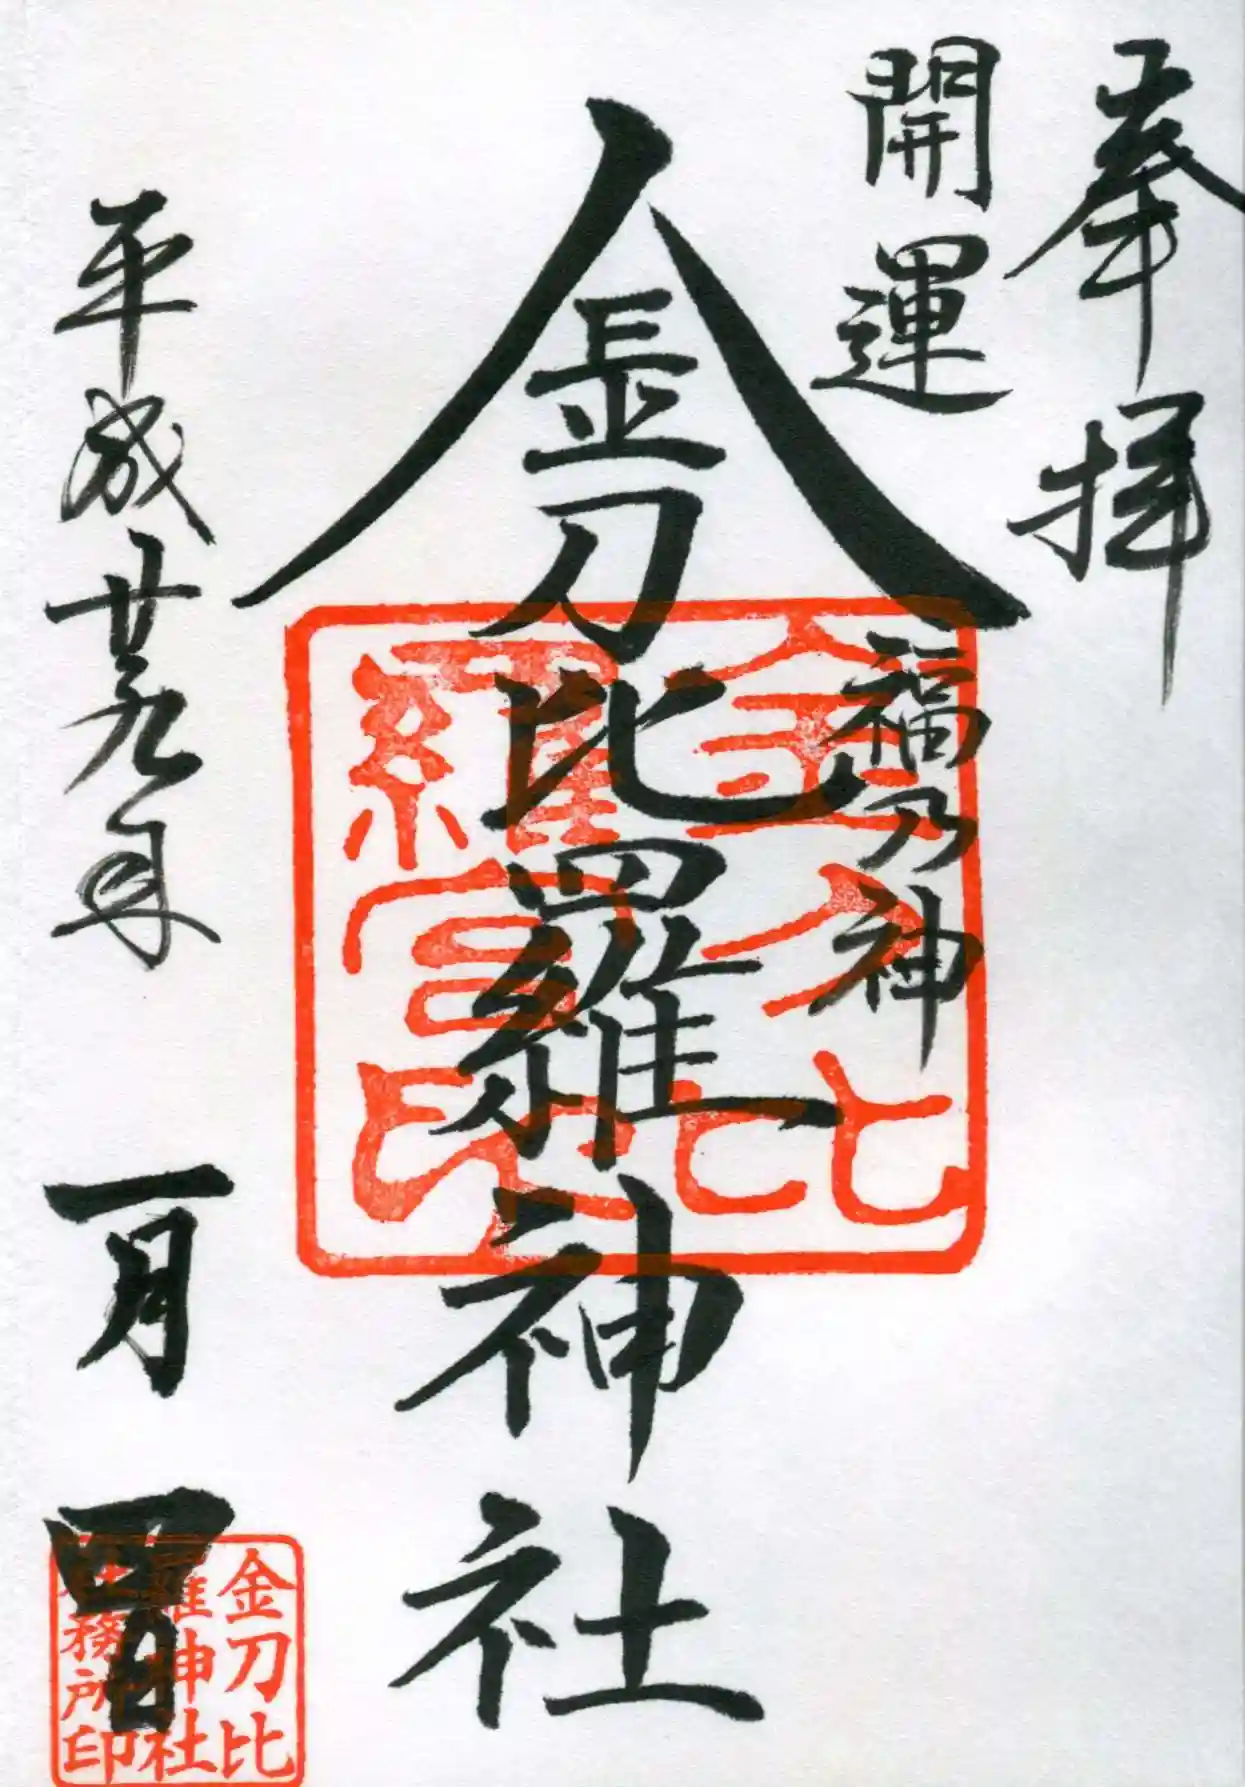 奉拝
開運
福乃神
金刀比羅神社
平成廿九年 一月四日
金刀比
羅宮印
金刀比
羅神社
社務所印